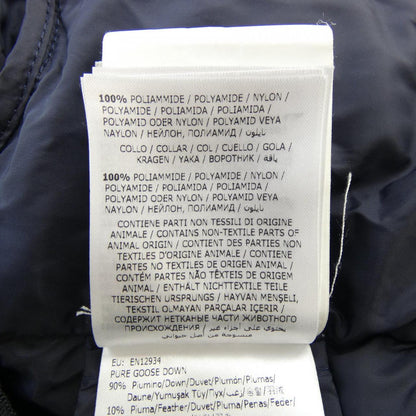 100% POLIAMMIDE / POLYAMIDE / NYLON /
POLYAMIDE / POLIAMIDA / POLIAMIDA /
POLYAMID ODER NYLON / POLYAMID VEYA
NAYLON / НЕЙЛОН, ПОЛИАМИД / نايلون
COLLO / COLLAR / COL / CUELLO / GOLA /
KRAGEN / YAKA / ВОРОТНИК / ياقة
100% POLIAMMIDE / POLYAMIDE / NYLON /
POLYAMIDE / POLIAMIDA / POLIAMIDA /
POLYAMID ODER NYLON / POLYAMID VEYA
NAYLON / НЕЙЛОН, ПОЛИАМИД / نايلون
CONTIENE PARTI NON TESSILI DI ORIGINE
ANIMALE / CONTAINS NON-TEXTILE PARTS OF
ANIMAL ORIGIN / CONTIENT DES PARTIES NON
TEXTILES D'ORIGINE ANIMALE / CONTIENE
PARTES NO TEXTILES DE ORIGEN ANIMAL
/ CONTÉM PARTES NÃO TÊXTEIS DE ORIGEM
ANIMAL / ENTHÄLT NICHTTEXTILE TEILE
TIERISCHEN URSPRUNGS / HAYVAN MENŞELİ,
TEKSTIL OLMAYAN PARÇALAR İÇERİR /
СОДЕРЖИТ НЕТКАНЫЕ ЧАСТИ ЖИВОТНОГО
ПРОИСХОЖДЕНИЯ / يحتوي على أجزاء غير
منسوجة من أصل حيواني
EU: EN12934
PURE GOOSE DOWN
90% Piumino/Down/Duvet/Plumón/Plumas/
Daune/Yumuşak Tüy/Пух/
10% Piuma/Feather/Duvet/Pluma/Penas/Feder/